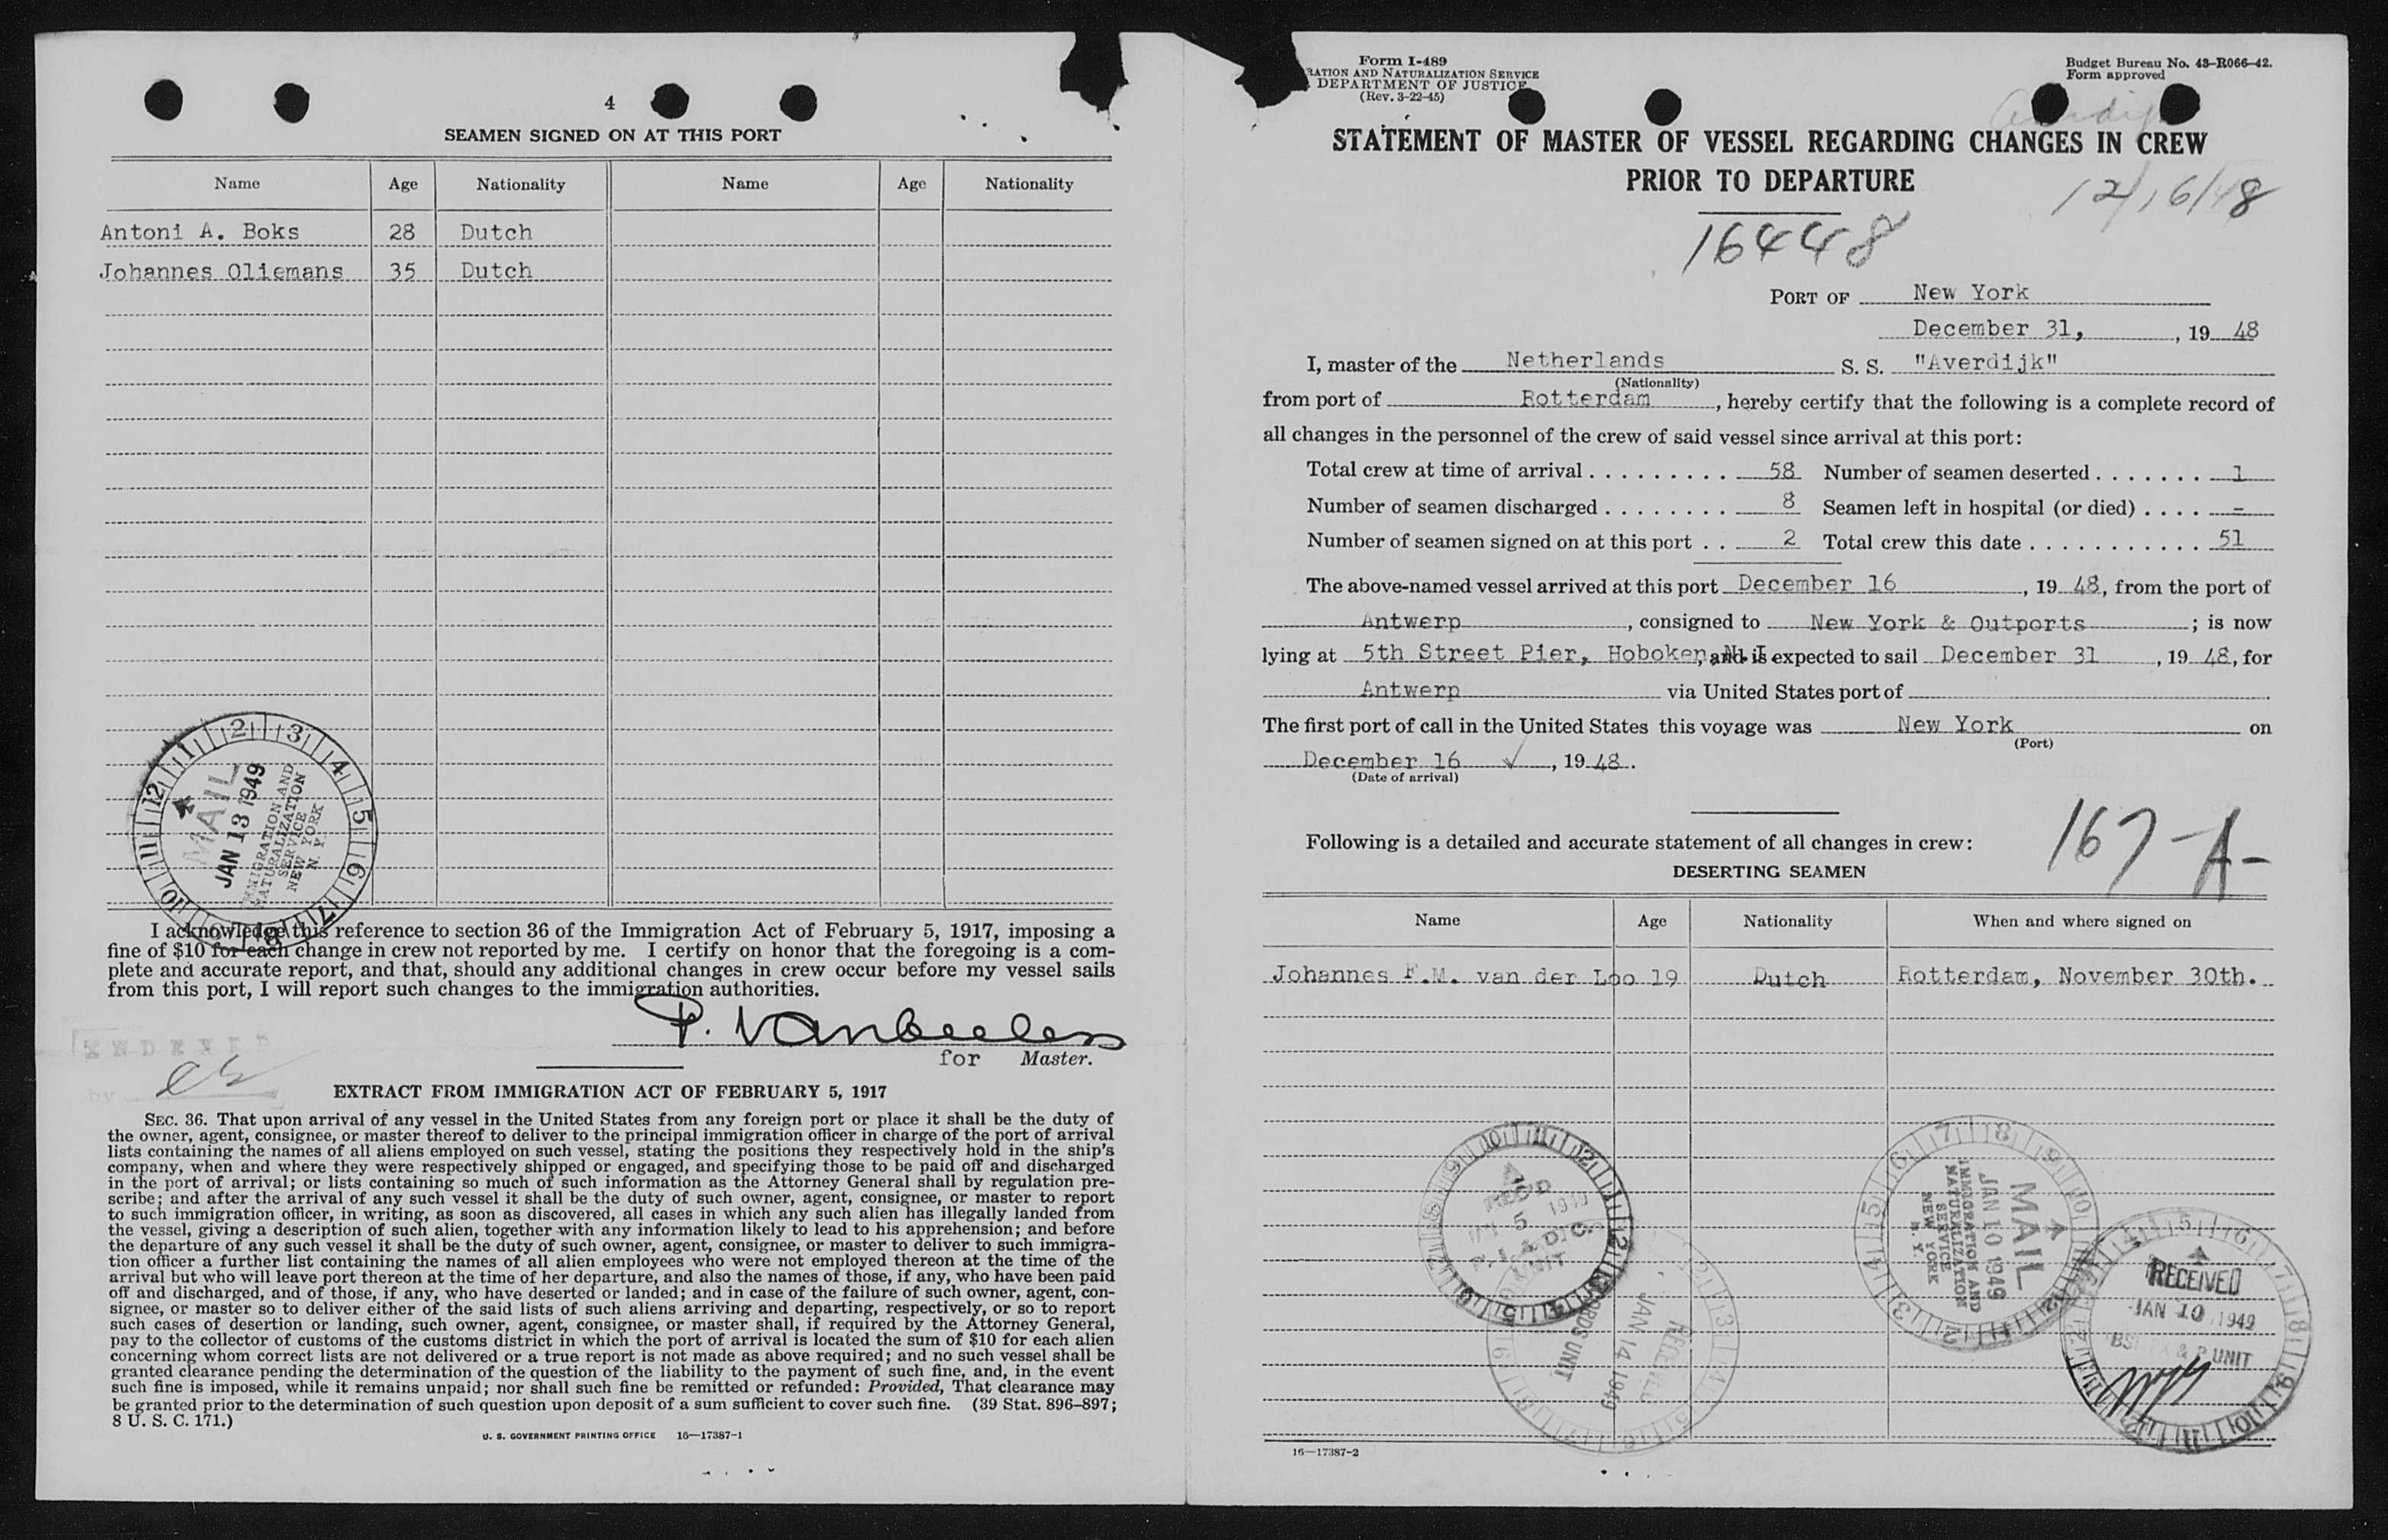 4
SEAMEN SIGNED ON AT THIS PORT
Name Age Nationality Name Age Nationality
Antoni A. Boks 28 Dutch
Johannes Oliemans 35 Dutch
12 1 2 3 4 5 6 7 8 10 11
MAIL
JAN 13 1949
IMMIGRATION AND
NATURALIZATION
SERVICE
NEW YORK
N. Y.
I acknowledge this reference to section 36 of the Immigration Act of February 5, 1917, imposing a
fine of $10 for each change in crew not reported by me. I certify on honor that the foregoing is a com-
plete and accurate report, and that, should any additional changes in crew occur before my vessel sails
from this port, I will report such changes to the immigration authorities.
for Master.
INDEXED
by
EXTRACT FROM IMMIGRATION ACT OF FEBRUARY 5, 1917
SEC. 36. That upon arrival of any vessel in the United States from any foreign port or place it shall be the duty of
the owner, agent, consignee, or master thereof to deliver to the principal immigration officer in charge of the port of arrival
lists containing the names of all aliens employed on such vessel, stating the positions they respectively hold in the ship's
company, when and where they were respectively shipped or engaged, and specifying those to be paid off and discharged
in the port of arrival; or lists containing so much of such information as the Attorney General shall by regulation pre-
scribe; and after the arrival of any such vessel it shall be the duty of such owner, agent, consignee, or master to report
to such immigration officer, in writing, as soon as discovered, all cases in which any such alien has illegally landed from
the vessel, giving a description of such alien, together with any information likely to lead to his apprehension; and before
the departure of any such vessel it shall be the duty of such owner, agent, consignee, or master to deliver to such immigra-
tion officer a further list containing the names of all alien employees who were not employed thereon at the time of the
arrival but who will leave port thereon at the time of her departure, and also the names of those, if any, who have been paid
off and discharged, and of those, if any, who have deserted or landed; and in case of the failure of such owner, agent, con-
signee, or master so to deliver either of the said lists of such aliens arriving and departing, respectively, or so to report
such cases of desertion or landing, such owner, agent, consignee, or master shall, if required by the Attorney General,
pay to the collector of customs of the customs district in which the port of arrival is located the sum of $10 for each alien
concerning whom correct lists are not delivered or a true report is not made as above required; and no such vessel shall be
granted clearance pending the determination of the question of the liability to the payment of such fine, and, in the event
such fine is imposed, while it remains unpaid; nor shall such fine be remitted or refunded: Provided, That clearance may
be granted prior to the determination of such question upon deposit of a sum sufficient to cover such fine. (39 Stat. 896-897;
8 U. S. C. 171.)
U. S. GOVERNMENT PRINTING OFFICE 16—17387-1
Form I-489
RATION AND NATURALIZATION SERVICE
DEPARTMENT OF JUSTICE
(Rev. 3-22-45)
Budget Bureau No. 43-R066-42.
Form approved
STATEMENT OF MASTER OF VESSEL REGARDING CHANGES IN CREW
PRIOR TO DEPARTURE
12/16/48
16448
PORT OF New York
December 31, , 19 48
I, master of the Netherlands S. S. "Averdijk"
(Nationality)
from port of Rotterdam , hereby certify that the following is a complete record of
all changes in the personnel of the crew of said vessel since arrival at this port:
Total crew at time of arrival . . . . . . . . . . 58 Number of seamen deserted . . . . . . . 1
Number of seamen discharged . . . . . . . . 8 Seamen left in hospital (or died) . . . . -
Number of seamen signed on at this port . . 2 Total crew this date . . . . . . . . . . . 51
The above-named vessel arrived at this port December 16 , 19 48, from the port of
Antwerp , consigned to New York & Outports ; is now
lying at 5th Street Pier, Hoboken, N.J. , and is expected to sail December 31 , 19 48, for
Antwerp via United States port of
The first port of call in the United States this voyage was New York on
(Port)
December 16 ✓ , 19 48.
(Date of arrival)
167-A-
Following is a detailed and accurate statement of all changes in crew:
DESERTING SEAMEN
Name Age Nationality When and where signed on
Johannes F.M. van der Loo 19 Dutch Rotterdam, November 30th.
REC'D
5 1949
RECORDS UNIT
JAN 14 1949
RECEIVED
MAIL
JAN 10 1949
IMMIGRATION AND
NATURALIZATION
SERVICE
NEW YORK
N. Y.
RECEIVED
JAN 10 1949
UNIT
16—17387-2